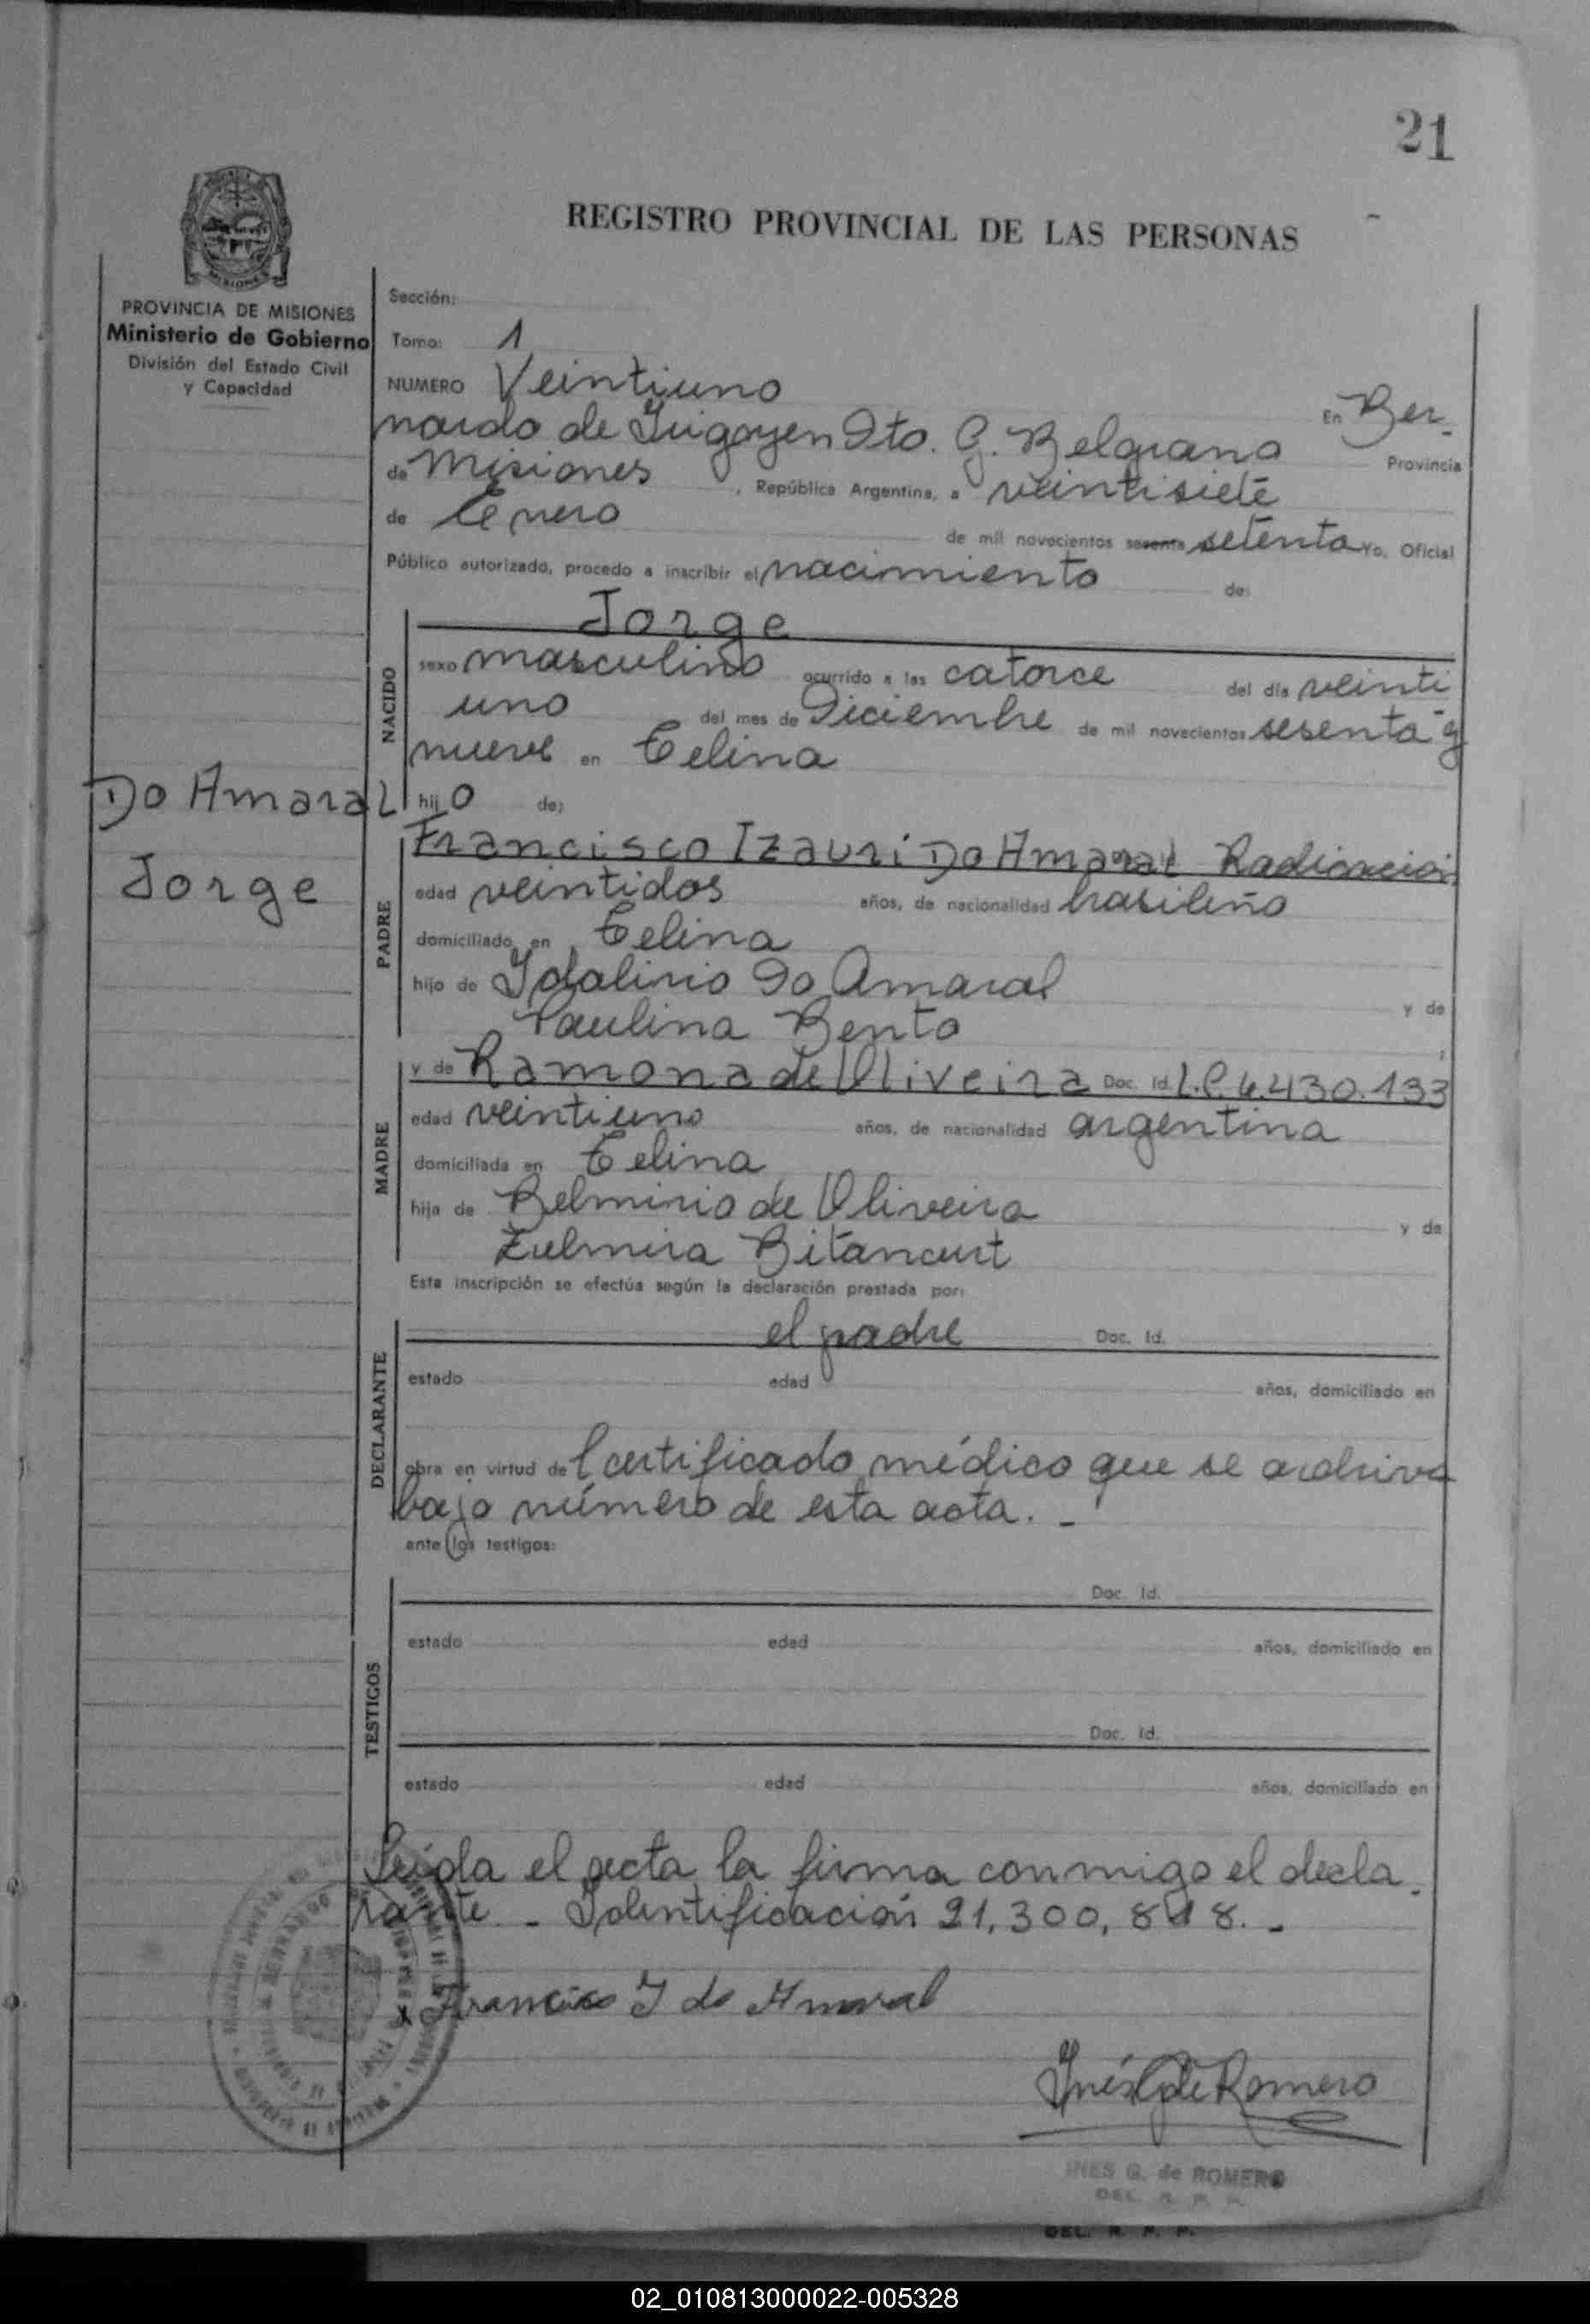 21
REGISTRO PROVINCIAL DE LAS PERSONAS
PROVINCIA DE MISIONES
Ministerio de Gobierno
División del Estado Civil
y Capacidad
Sección:
Tomo: 1
NUMERO Veintiuno
En Ber-
nardo de Irigoyen Dto. G. Belgrano Provincia
de Misiones, República Argentina, a veintisiete
de Enero de mil novecientos sesenta setenta Yo, Oficial
Público autorizado, procedo a inscribir el nacimiento de:
Jorge
NACIDO
sexo masculino ocurrido a las catorce del día veinti
uno del mes de Diciembre de mil novecientos sesenta y
nueve en Celina
hijo de:
Do Amaral
Jorge
PADRE
Francisco Izauri Do Amaral Radicación
edad veintidos años, de nacionalidad brasileño
domiciliado en Celina
hijo de Idalirio Do Amaral y de
Paulina Bento
MADRE
y de Ramona de Oliveira Doc. Id. L.C. 6.430.133
edad veintiuno años, de nacionalidad argentina
domiciliada en Celina
hija de Belmirio de Oliveira y de
Zulmira Bitancurt
Esta inscripción se efectúa según la declaración prestada por:
DECLARANTE
el padre Doc. Id.
estado edad años, domiciliado en
obra en virtud de Certificado médico que se archiva
bajo número de esta acta. -
ante los testigos:
TESTIGOS
Doc. Id.
estado edad años, domiciliado en
Doc. Id.
estado edad años, domiciliado en
Leída el acta la firma conmigo el decla-
rante. - Identificación 21.300.818. -
Francisco I do Amaral
Inés G de Romero
INES G. de ROMERO
DEL. R. P. P.
DEL. R. P. P.
02_010813000022-005328